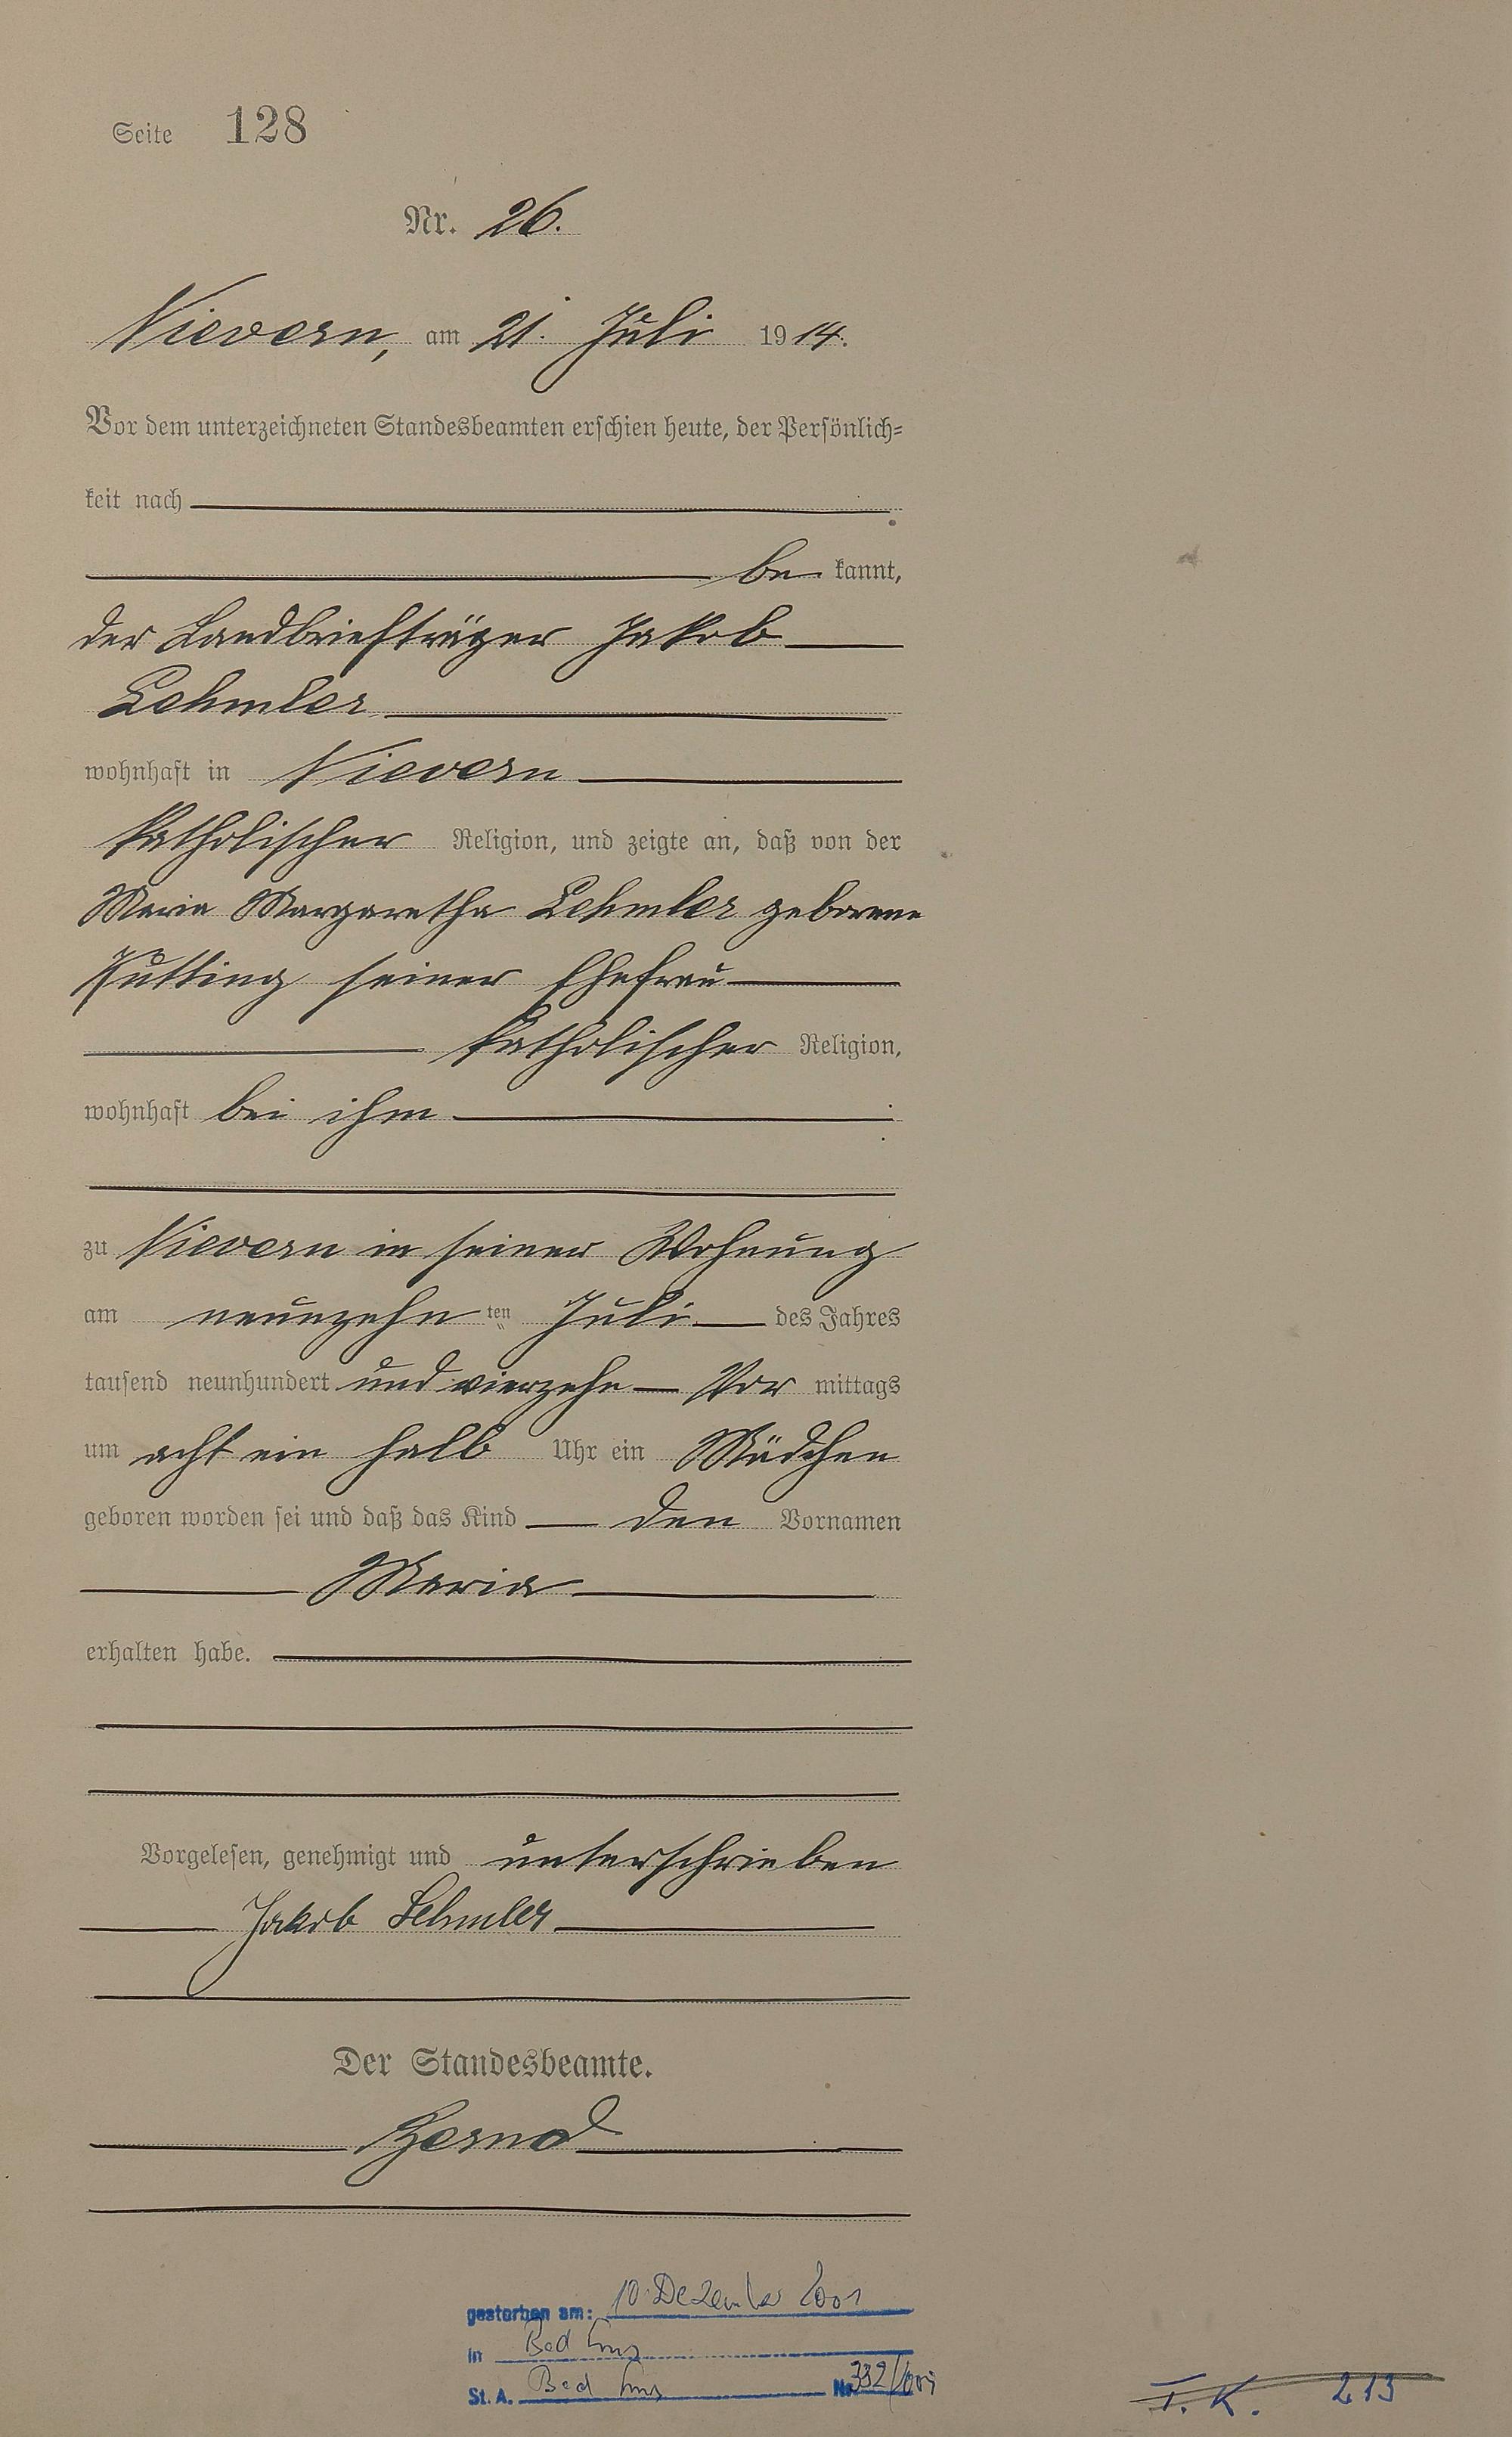 Seite 128
Nr. 26.
Nievern, am 21. Juli 1914.
Vor dem unterzeichneten Standesbeamten erschien heute, der Persönlich-
keit nach
be kannt,
der Landbriefträger Jakob
Lehmler
wohnhaft in Nievern
katholischer Religion, und zeigte an, daß von der
Maria Margaretha Lehmler geborene
seiner Ehefrau
katholischer Religion,
wohnhaft bei ihm
zu Nievern in seiner Wohnung
am neunzehn ten Juli des Jahres
tausend neunhundert und vierzehn Vor mittags
um acht ein halb Uhr ein Mädchen
geboren worden sei und daß das Kind den Vornamen
Maria
erhalten habe.
Vorgelesen, genehmigt und unterschrieben
Jakob Lehmler
Der Standesbeamte.
gestorben am: 10. Dezember 2001
in Bad Ems
St. A. Bad Ems Nr. 332/2001
T. K. 213